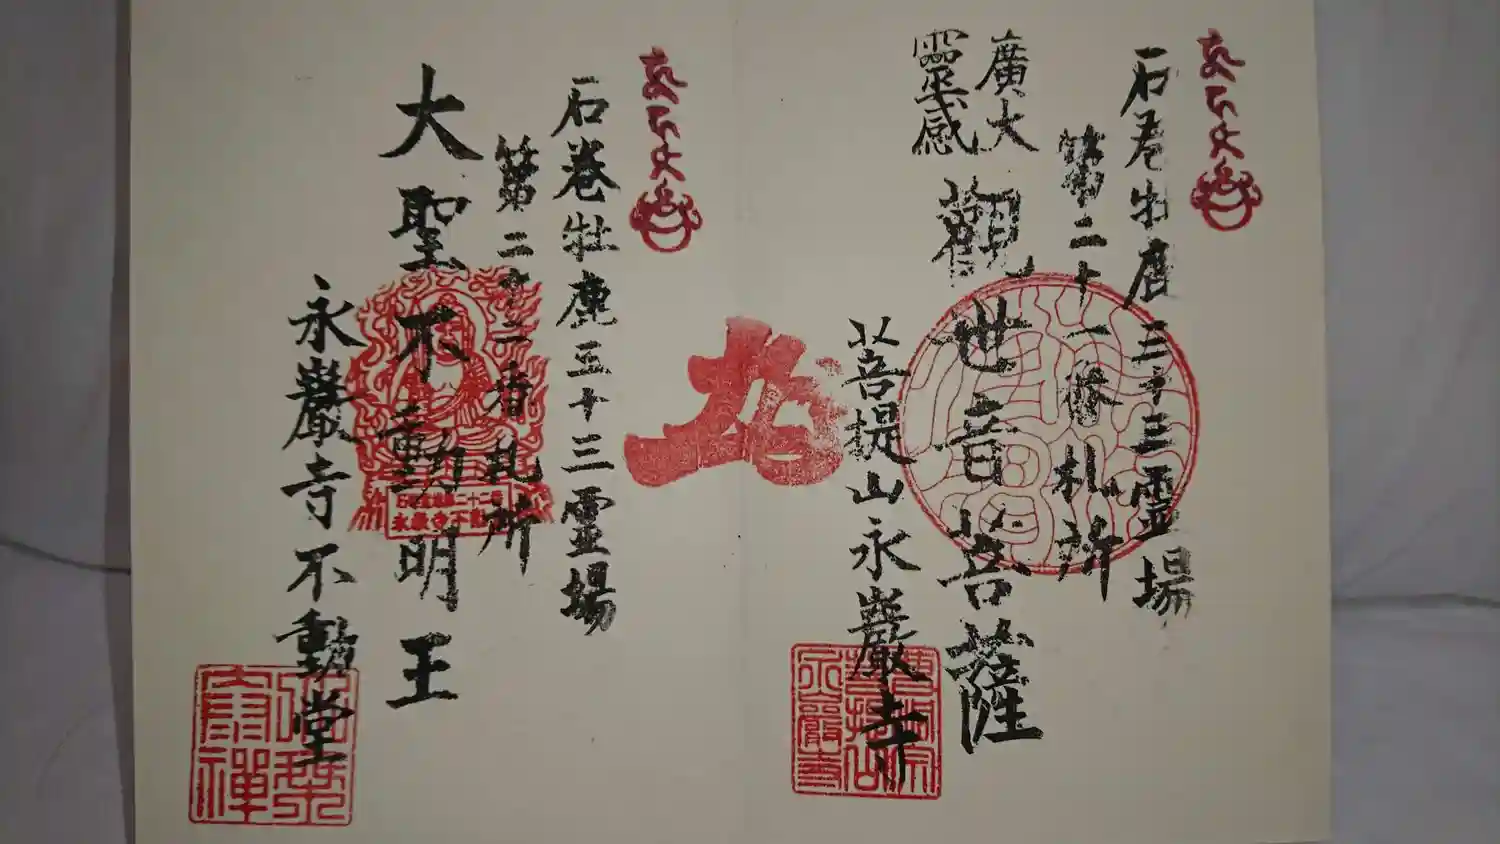 石巻牡鹿三十三霊場
第二十一番札所
廣大
靈感
觀世音菩薩
菩提山永巖寺
石巻牡鹿三十三霊場
第二十二番札所
大聖不動明王
永巖寺不動堂